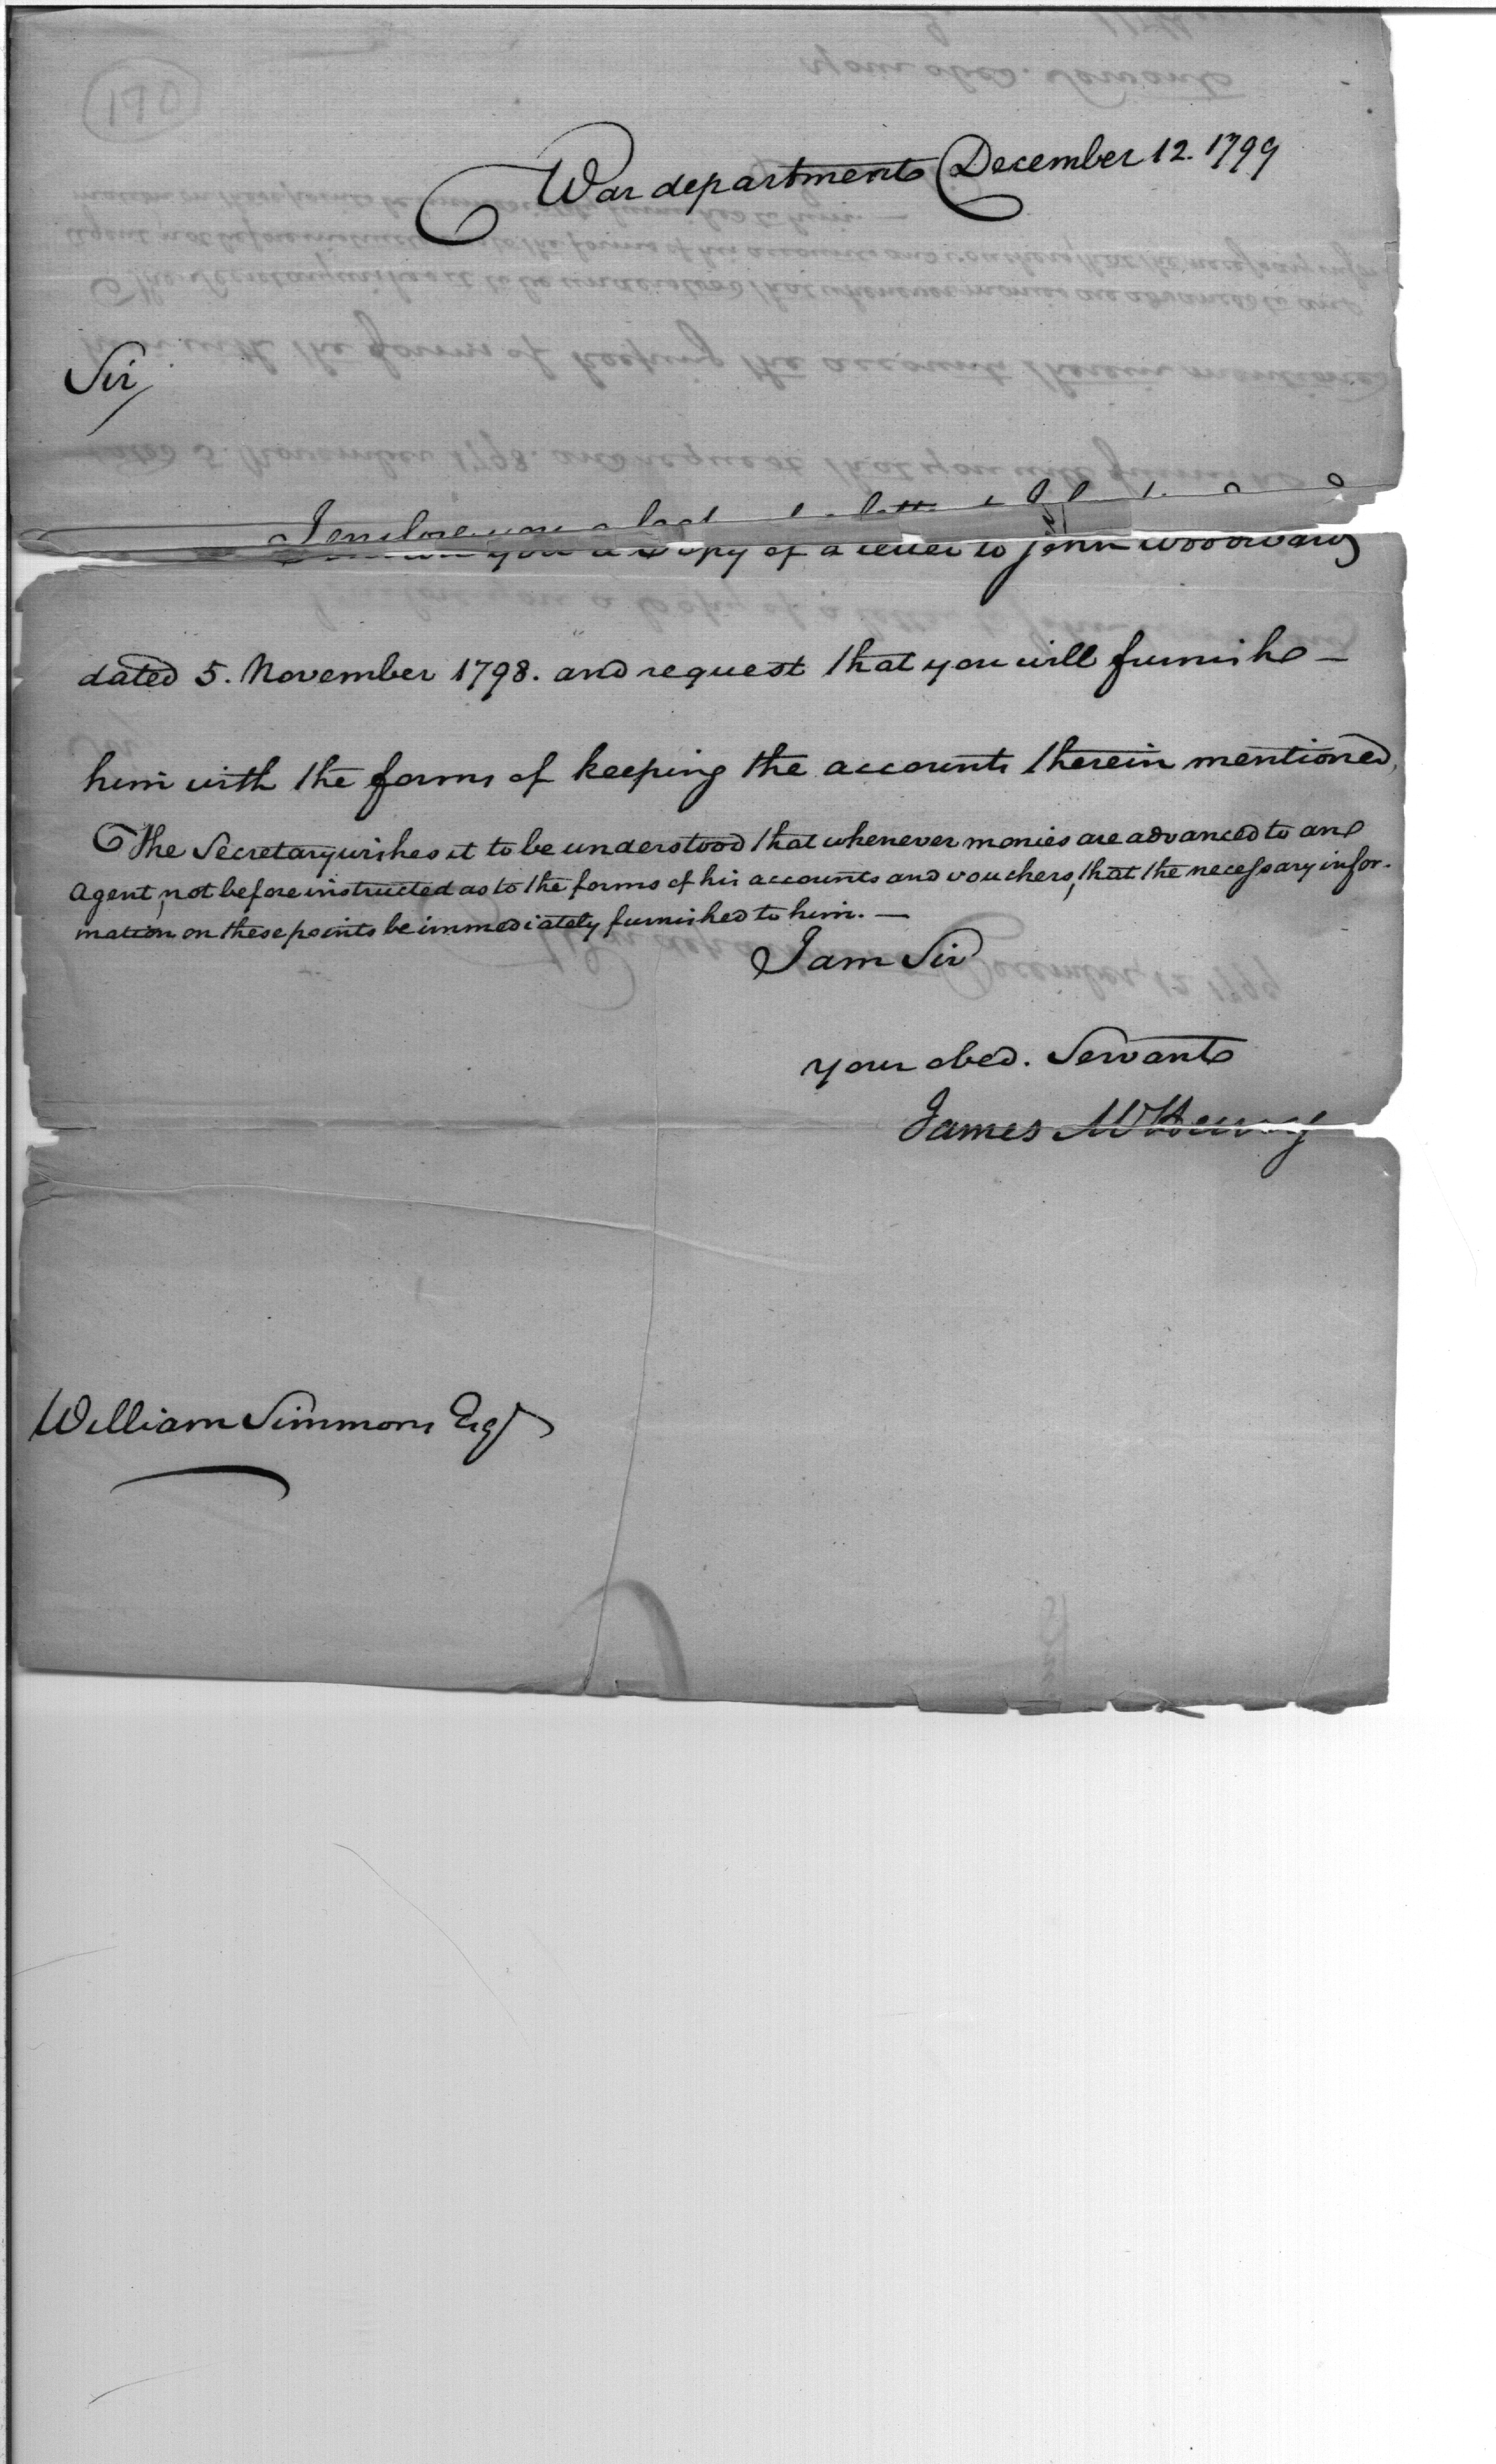 140
War department December 12. 1799
Sir,
I enclose you a Copy of a letter to John Woodward
dated 5. November 1798. and request that you will furnish —
him with the forms of keeping the accounts therein mentioned,
The Secretary wishes it to be understood that whenever monies are advanced to any
Agent, not before instructed as to the forms of his accounts and vouchers, that the necessary infor-
mation on these points be immediately furnished to him. —
I am Sir
your obed. Servant
James McHenry
William Simmons Esqr